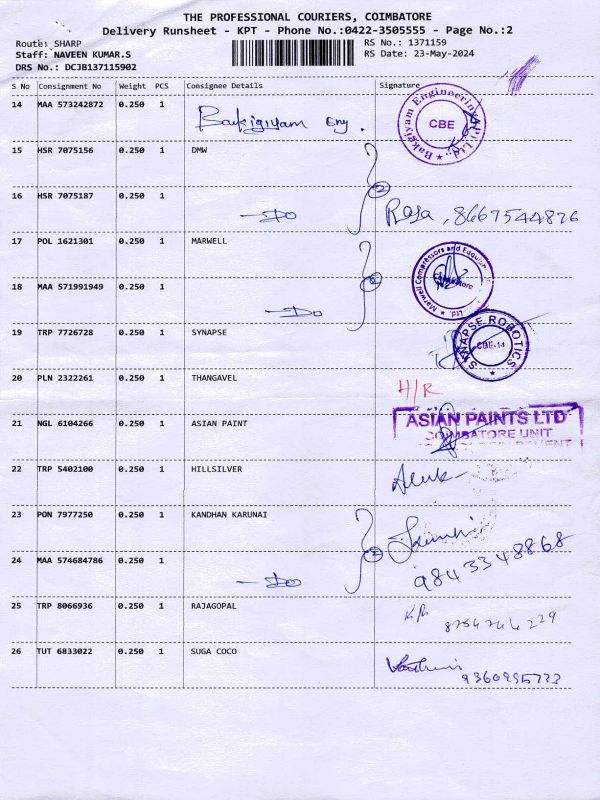 THE PROFESSIONAL COURIERS, COIMBATORE
Delivery Runsheet - KPT - Phone No.:0422-3505555 - Page No.:2
Route: SHARP
Staff: NAVEEN KUMAR.S
DRS No.: DCJB137115902
RS No.: 1371159
RS Date: 23-May-2024
S No Consignment No Weight PCS Consignee Details Signature
14 MAA 573242872 0.250 1 Bakigiyam Eng. Bakgiyam Engineering (P) Ltd. CBE
15 HSR 7075156 0.250 1 DMW
16 HSR 7075187 0.250 1 —Do 2 Raja, 8667544876
17 POL 1621301 0.250 1 MARWELL
18 MAA 571991949 0.250 1 —Do 2 Marwell Compressors and Ltd.
19 TRP 7726728 0.250 1 SYNAPSE SYNAPSE ROBOTICS CBE-14
20 PLN 2322261 0.250 1 THANGAVEL H/R
21 NGL 6104266 0.250 1 ASIAN PAINT ASIAN PAINTS LTD
COIMBATORE UNIT
22 TRP 5402100 0.250 1 HILLSILVER
23 PON 7977250 0.250 1 KANDHAN KARUNAI
24 MAA 574684786 0.250 1 —Do 2 9843348868
25 TRP 8066936 0.250 1 RAJAGOPAL
26 TUT 6833022 0.250 1 SUGA COCO